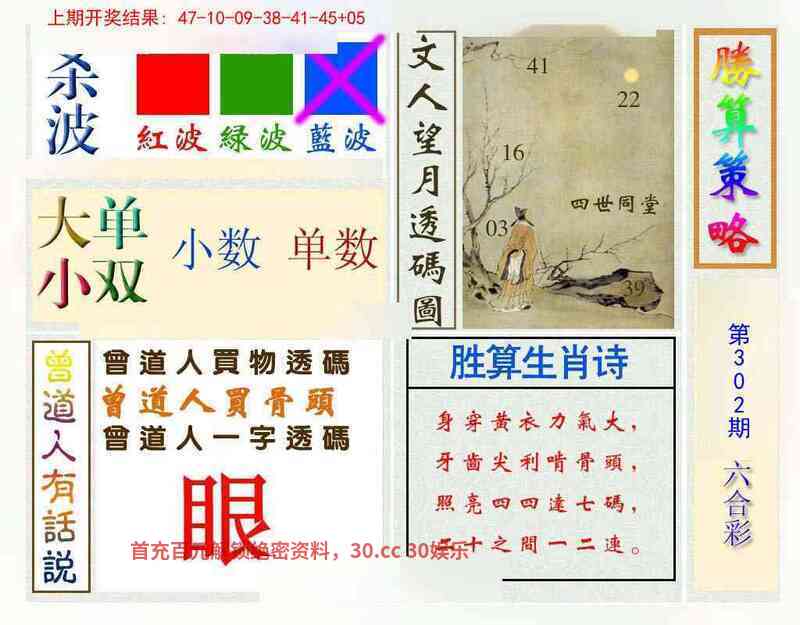 上期开奖结果：47-10-09-38-41-45+05
杀波
紅波 緑波 藍波
大单
小双
小数 单数
文人望月透碼圖
41
22
16
四世同堂
03
39
勝算策略
第302期
六合彩
曾道人有話説
曾道人買物透碼
曾道人買骨頭
曾道人一字透碼
眼
胜算生肖诗
身穿黄衣力氣大，
牙齒尖利啃骨頭，
照亮四四逵七碼，
二十之間一二連。
首充百元解锁绝密资料，30.cc 30娱乐